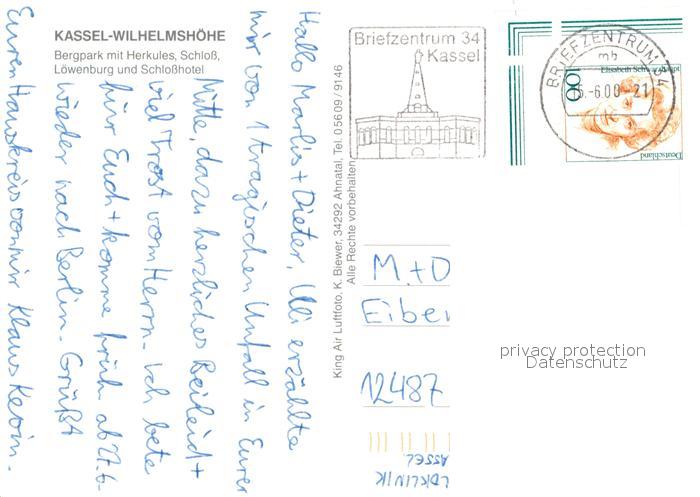 KASSEL-WILHELMSHÖHE
Bergpark mit Herkules, Schloß,
Löwenburg und Schloßhotel
Hallo Marlies + Dieter, Uli erzählte
mir von 1 tragischen Unfall in Eurer
Mitte, dazu herzliches Beileid +
viel Trost vom Herrn. Ich bete
für Euch + komme früh ab 27.6.
wieder nach Berlin. Grüßt
Euren Hauskreis von mir Klaus Kevin.
King Air Luftfoto, K. Biewer, 34292 Ahnatal, Tel. 0 56 09 / 91 46
Alle Rechte vorbehalten
Briefzentrum 34
Kassel
BRIEFZENTRUM 34
mb
-6.00-21
Elisabeth Schwarzhaupt
100
Deutschland
M. + D
Eiber
12487
privacy protection
Datenschutz
LDKLINIK
ASSEL